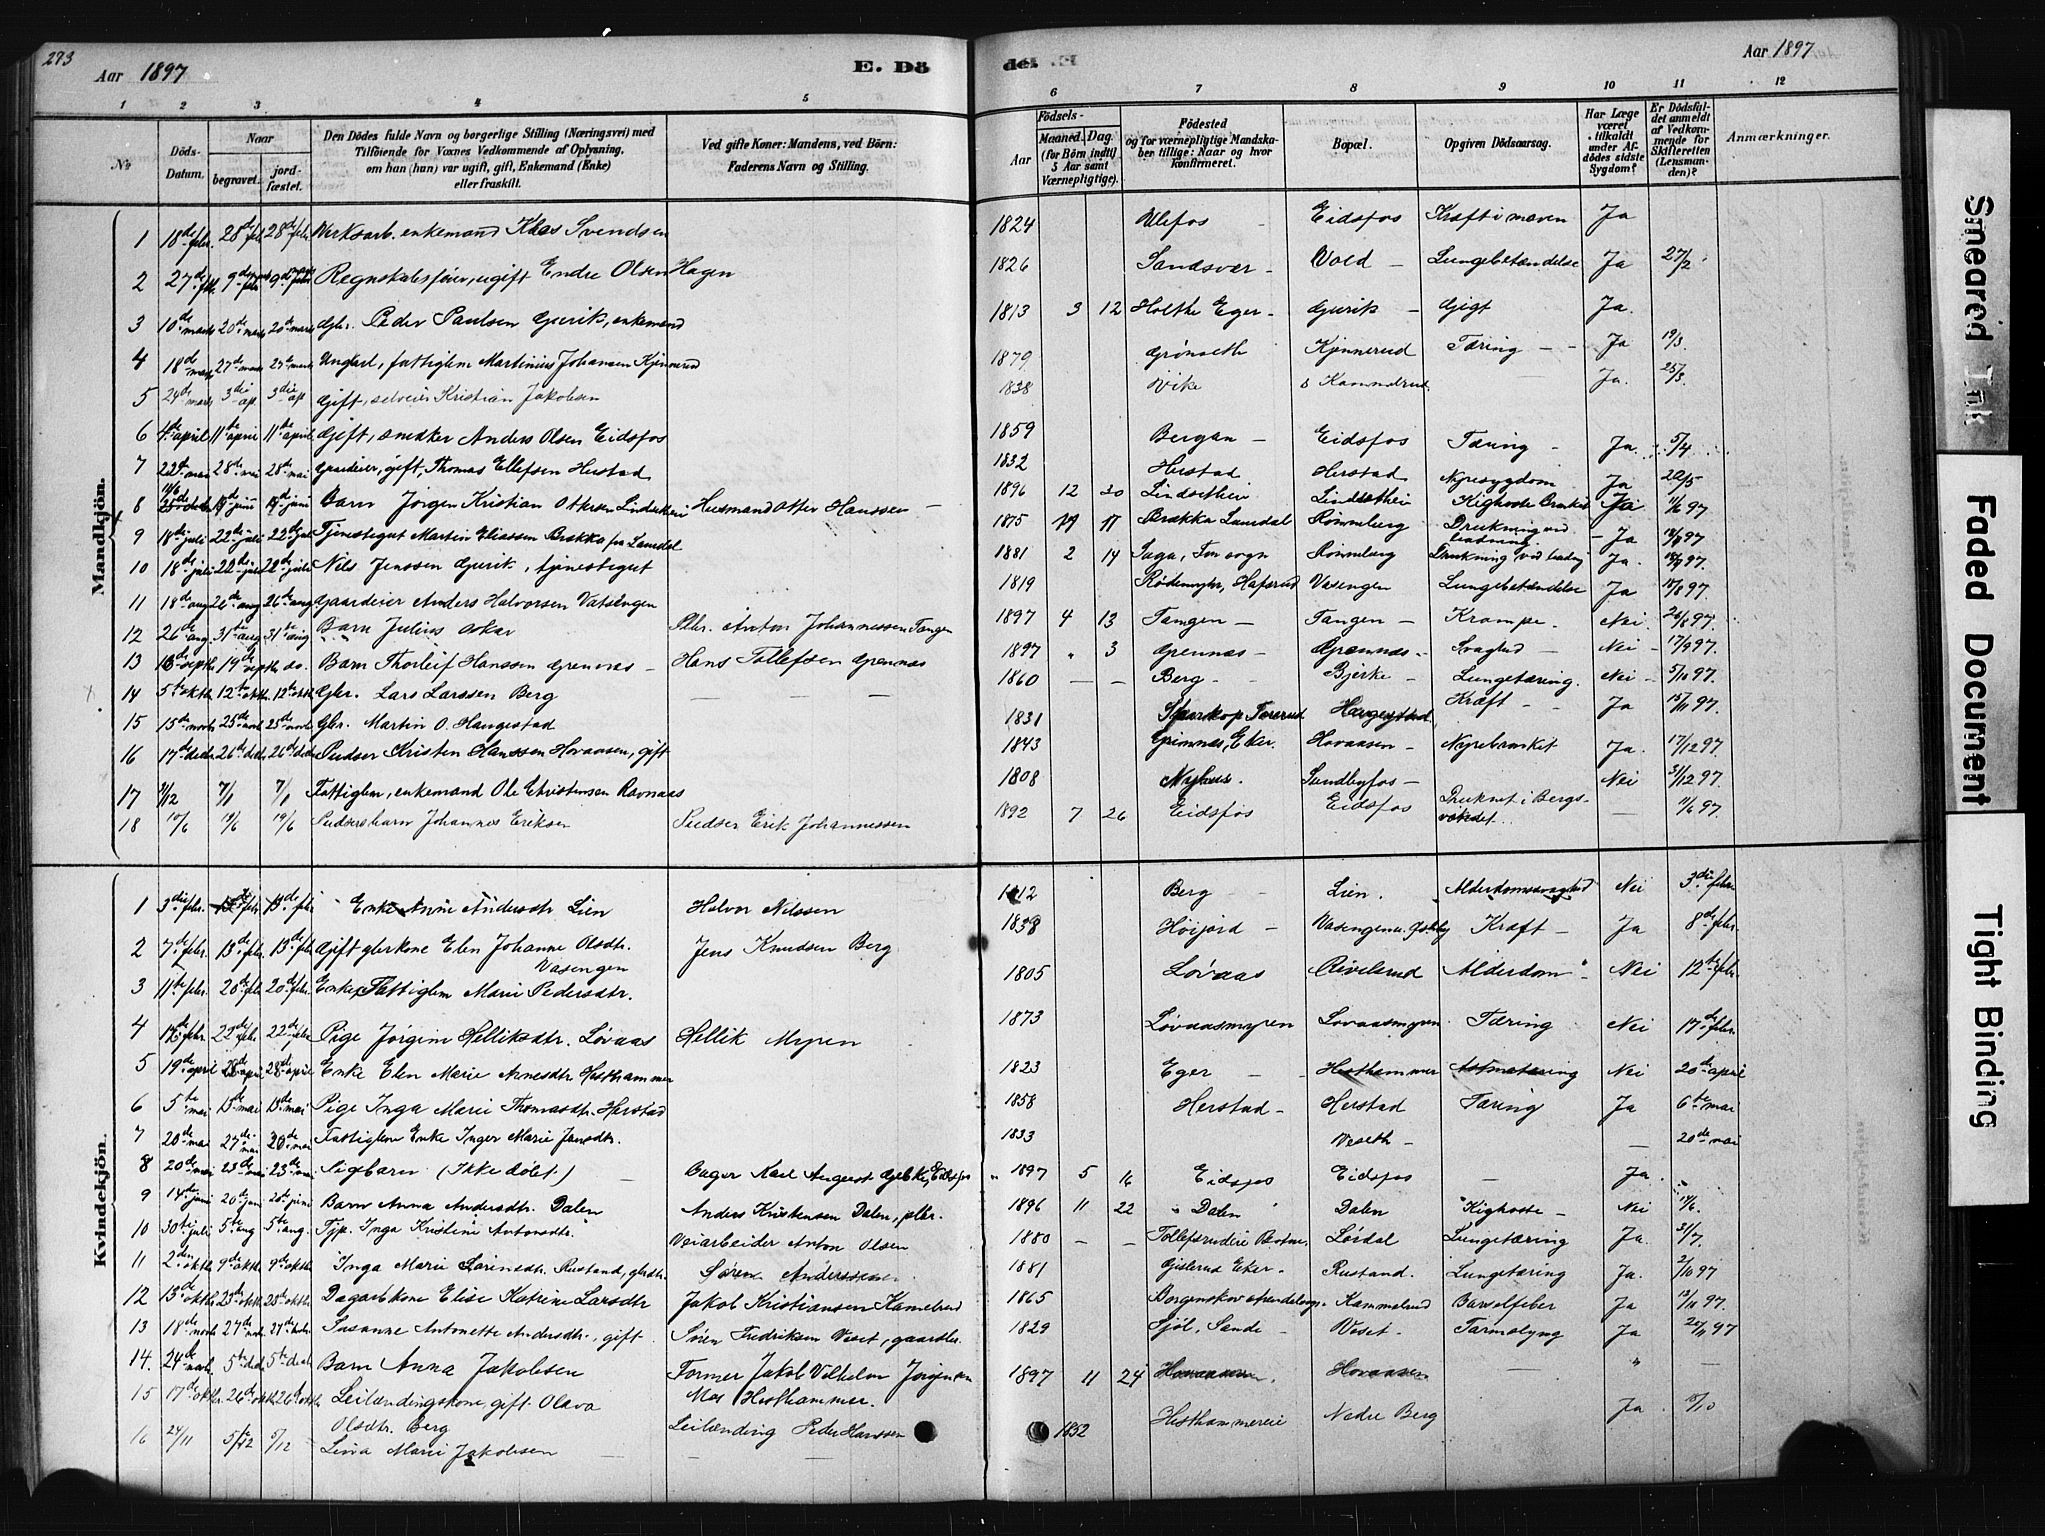 273
Aar 1897
E. Dö
de. E.
Aar 1897
1 2 3 4 5 6 7 8 9 10 11 12
№
Döds-Datum.
Naar
begravet.
jordfæstet.
Den Dödes fulde Navn og borgerlige Stilling (Næringsvei) med Tilföiende for Voxnes Vedkommende af Oplysning, om han (hun) var ugift, gift, Enkemand (Enke) eller fraskilt.
Ved gifte Koner: Mandens, ved Börn: Faderens Navn og Stilling.
Födsels-
Aar
Maaned. Dag.
(for Börn indtil 5 Aar samt Værnepligtige).
Födested og for værnepligtige Mandskaber tillige: Naar og hvor konfirmeret.
Bopæl.
Opgiven Dödsaarsag.
Har Læge været tilkaldt under Afdödes sidste Sygdom?
Er Dödsfaldet anmeldt af Vedkommende for Skifteretten (Lensmanden)?
Anmærkninger.
Mandkjön.
1 18de febr. 28de feb 28de febr. Verksarb. enkemand Klas Svendsen 1824 Ulefos Eidsfos Kræft i maven Ja
2 27de feb 9de 9de Regnskabsfører, ugift Endre Olsen Hagen 1826 Sandsvær Vold Lungebetændelse Ja 27/2
3 10de marts 20de marts 20de marts Gbr. Peder Paulsen Gjerik, enkemand 1813 3 12 Holthe Eger Gjerik Gigt Ja.
4 18de mars 27de mars 27de mars Ungkarl, fattiglem Martinius Johansen Kjennerud 1879 Grønseth Kjennerud Tæring Ja 19/3
5 24de marts 3die ap 3die ap Gift, selveier Kristian Jakobsen 1838 Vike Kammelrud Ja. 25/3
6 4de april 11te april 11te april Gift, smeker Anders Olsen Eidsfos 1859 Bergan Eidsfos Tæring Ja 5/4
7 22de mai 28de mai 28de mai Gaardeier, gift, Thomas Ellefsen Herstad 1832 Herstad Herstad Nyresygdom Ja 22/5
8 19de juni 19de juni Barn Jørgen Kristian Ottersen Lindsethei Husmand Otter Hanssen 1896 12 30 Lindsethei Lindsethei Kighoste Ja 11/6 97
9 18de juli 22de juli 22de juli Tjenestegut Martin Eliassen Brække fra Laurdal 1875 17 Brække Laurdal Rønneberg Drukning ved badning Ja
10 18de juli 22de juli 22de juli Nils Jenssen Gjerik, tjenestegut 1881 2 14 Rønneberg Drukning ved badn. Ja
11 18de aug 26de aug 26de aug Gaardeier Anders Halvorsen Vatsengen 1819 Rødemyhr, Hafsrud Vasengen Lungebetændelse Ja 18/8 97.
12 26de aug 31te aug 31te aug Barn Julius Oskar Gbr. Anton Johannessen Tangen 1897 4 13 Tangen Tangen Krampe. Nei 26/8 97.
13 16de septb 19de septb do. Barn Thorleif Hanssen Grennes Hans Tollefsen Grennæs 1897 " 3 Grennæs Grennæs Svaghed Nei 17/9 97.
14 5te oktb 12te oktb 12te oktb Gbr. Lars Larssen Berg 1860 Berg Bjerke Lungetæring. Nei 5/10 97.
15 15de novb 25de novb 25de novb Gbr. Martin O. Haugestad 1831 Haugestad Kræft Ja 15/11 97.
16 17de decbr 26de decb 26de decb Pudser Kristen Hanssen Hovaasen, gift 1843 Grimnæs, Eker. Hovaasen Nyrebrusket Ja 17/12 97.
17 31/12 7/1 7/1 Fattiglem, enkemand Ole Christensen Ravnaas 1808 Nyhus. Sundbyfos Nei 31/12 97.
18 10/6 19/6 19/6 Pudsers barn Johannes Eriksen Pudser Erik Johannessen 1892 7 26 Eidsfos Eidsfos Druknet i Bergsvandet 11/6 97.
Kvindekjön.
1 3die febr. 13de febr 13de febr Enke Anne Andersdtr Lien Halvor Nilssen 1812 Berg Lien. Alderdomssvaghed Nei 3die febr.
2 7de febr. 13de febr. 13de febr. Gift gbrkone Elen Johanne Olsdtr. Vasengen Jens Knudsen Berg 1838 Høijord Vasengen Kræft Ja 8de febr.
3 11te febr. 20de febr 20de febr. Enke, Fattiglem Marie Pedersdtr. 1805 Løvaas Alderdom Nei 12te febr
4 17de febr. 22de febr 22de febr Pige Jørgine Helliksdtr. Løvaas Hellik Myren 1873 Løvaasmyren Lovaasmyren Tæring Nei 17de febr.
5 19de april 28de april 28de april Enke Elen Marie Arnesdtr Hesthammer 1823 Eger Hesthammer Astmatæring Nei 20de april
6 5te mai 13de mai 13de mai Pige Inga Marie Thomasdtr. Herstad 1858 Herstad Herstad Tæring Ja 6te mai
7 20de mai 27de mai Fattiglem Enke Inger Marie Jensdtr. 1833 Veseth 20de mai
8 20de mai 23de mai 23de mai Pigebarn (Ikke døbt) Bager Karl August Gjelkes, Eidsfos 1897 5 16 Eidsfos Eidsfos Ja
9 14de juni 20de juni 20de juni Barn Anna Andersdtr. Dalen Anders Kristensen Dalen, gbr. 1896 11 22 Dalen Dalen Kighoste Nei 14/6.
10 30te juli 5te aug 5te aug. Tjp. Inga Kristine Antonsdtr. Veiarbeider Anton Olsen 1880 Lørdal Lungetæring Ja 31/7.
11 2den oktb 9de oktb 9de oktb Inga Marie Sørinesdtr. Rustand, gbrdtr. Søren Anderssen 1881 Gjislerud Eker. Rustand. Lungetæring Ja. 2/10 97
12 13de oktbr 23de oktb 23de oktb. Dagarbkone Elise Katrine Larsdtr Jakob Kristiansen Kamelrud 1865 Kammelrud Barselfeber Ja 97.
13 18de novb 27de novb 27de novbr. Susanne Antonette Andersdtr., gift Søren Fredriksen Veset, gaardbr. 1829 Sjøl, Sande Veset. Tarmslyng Ja 97
14. 24de novb. 5te decb 5te decb Barn Anna Jakobsen Former Jakob Vilhelm Jørgensen 1897 11 24 Hovaasen Hovaasen
15 17de oktbr 26de oktb 26de oktbr Leilændingskone, gift Olava Olsdtr. Berg Hesthammer. Leilænding Peder Hanssen 1852 Hesthammereie Nedre Berg Ja 18/10
16 24/11 5/12 5/12 Lina Marie Jakobsen
Smeared Ink
Faded Document
Tight Binding